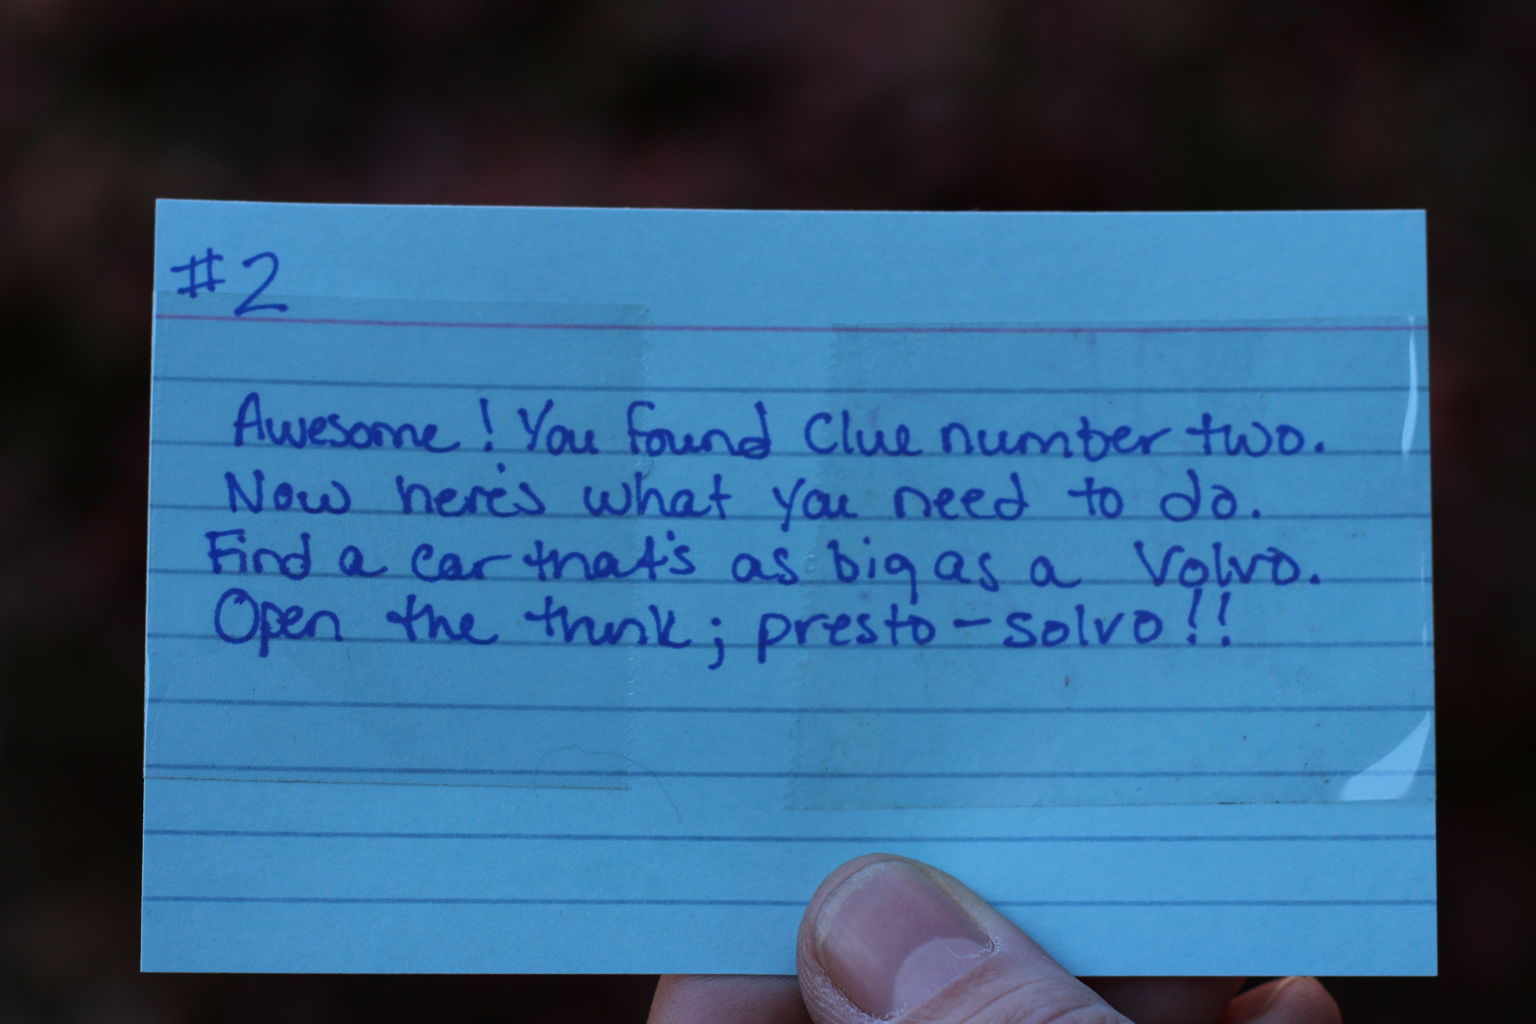 #2
Awesome! You found Clue number two.
Now here's what you need to do.
Find a car that's as big as a Volvo.
Open the trunk; presto-solvo!!